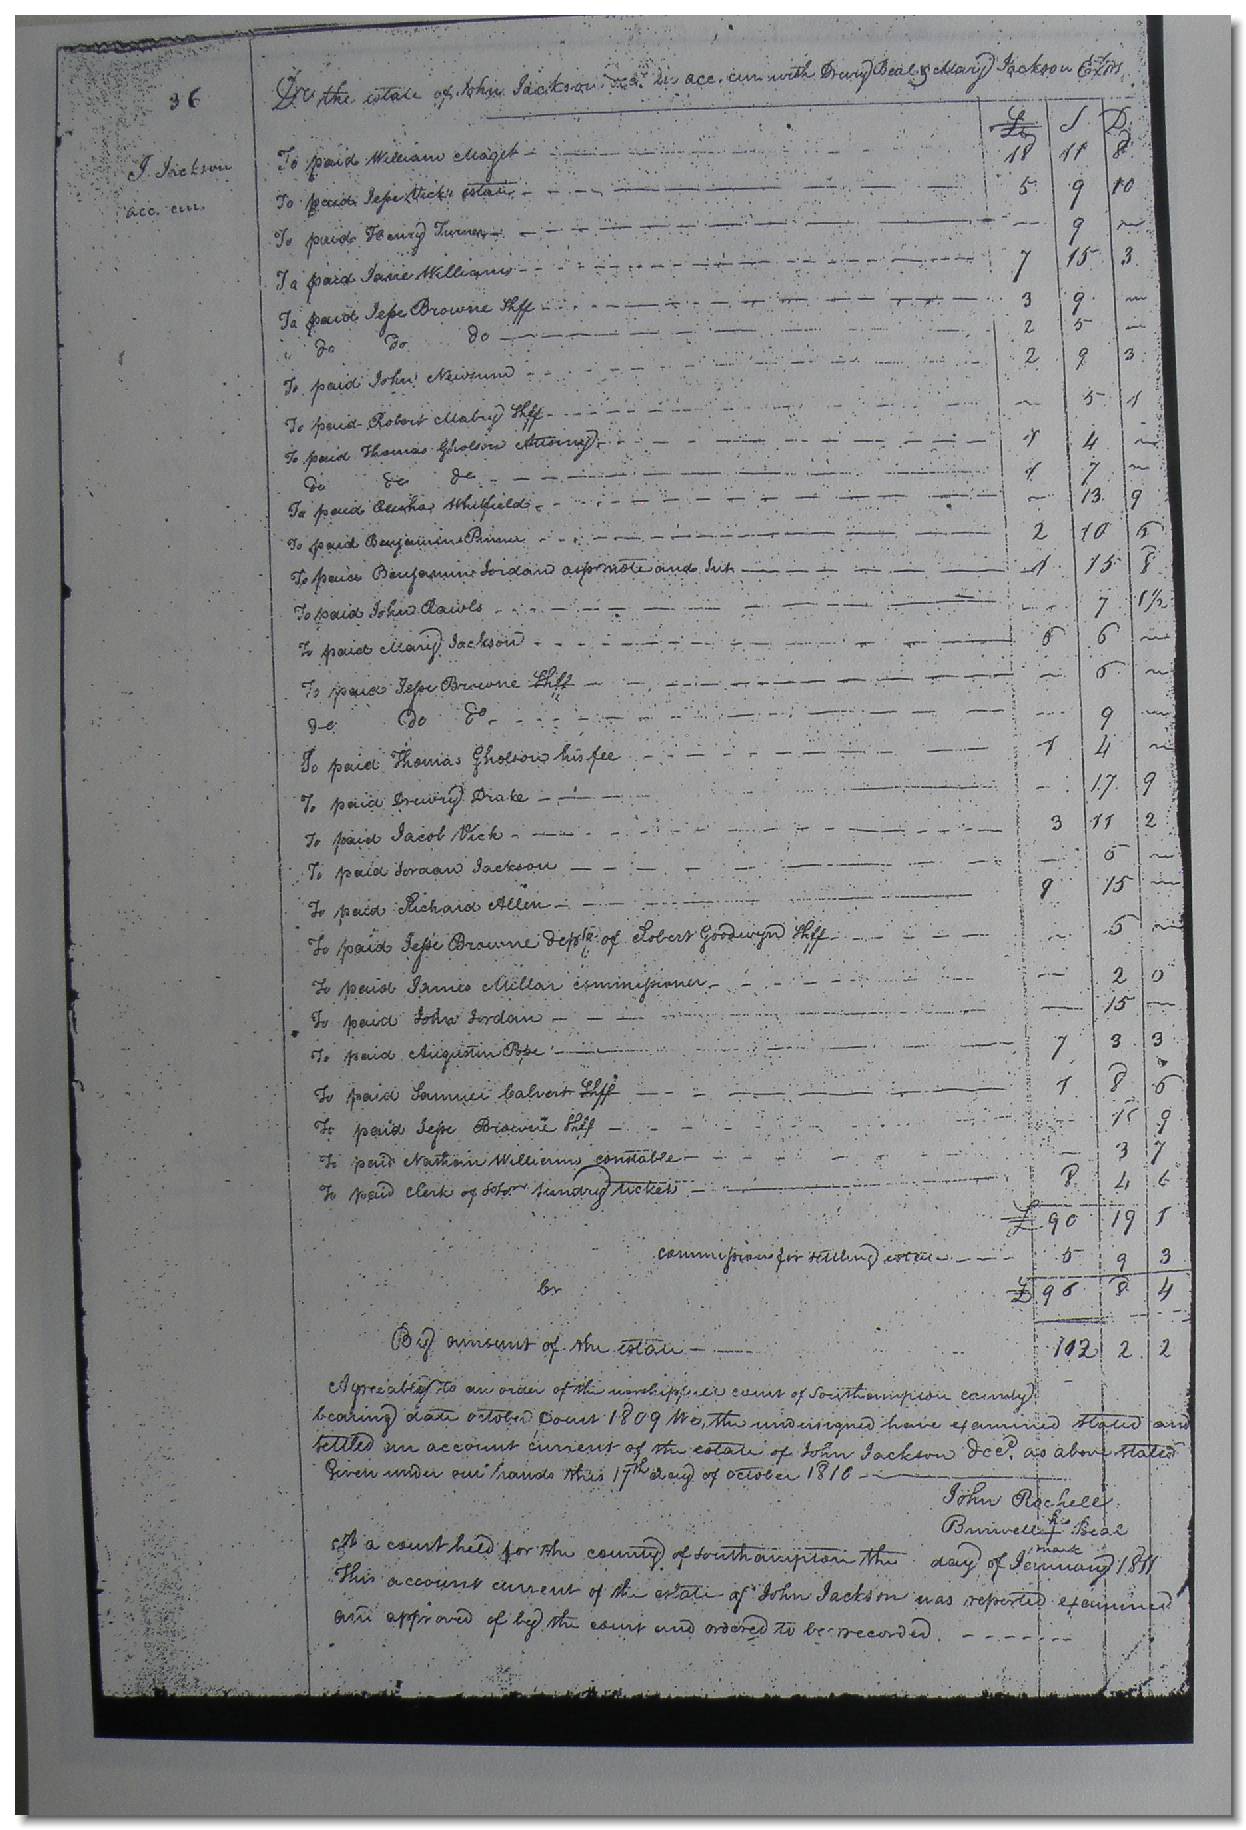 36
Dr the estate of John Jackson decd in acc. cur. with Drewry Beal & Mary Jackson Exrs
J. Jackson
acc. cur.
£ S D
To paid William Maget 18 11 8
To paid Jesse Vick's estate 5 9 10
To paid Henry Turner 9 —
To paid Jane Williams 7 15 3
To paid Jesse Browne Shff 3 9 —
" do do do 2 5 —
To paid John Newsum 2 9 3
To paid Robert Mabry Shff — 5 1
To paid Thomas Gholson Attorney 1 4 —
do do do 1 7 —
To paid Elisha Whitfield — 13 9
To paid Benjamin 2 10 6
To paid Benjamin Jordan as pr note and Int 1 15 8
To paid John Rawls 7 1½
To paid Mary Jackson 6 6 —
To paid Jesse Browne Shff — 6 —
do do do — 9 —
To paid Thomas Gholson his fee 1 4 —
To paid Drewry Drake — 17 9
To paid Jacob Vick 3 11 2
To paid Jordan Jackson — 6 —
To paid Richard Allen 9 15 —
To paid Jesse Browne depty of Robert Goodwyn Shff — 6 —
To paid James Millar commissioner — 2 0
To paid John Jordan — 15 —
To paid Augustin Pope 7 3 3
To paid Samuel Calvert Shff 1 8 6
To paid Jesse Browne Shff 15 9
To paid Nathan Williams constable — 3 7
To paid Clerk of sundry tickets 8 4 6
£ 90 19 1
commission for settling estate 5 9 3
£ 96 8 4
Cr
By amount of the estate 112 2 2
Agreeably to an order of the worshipfull court of Southampton county
bearing date october Court 1809 We, the undersigned have examined stated and
settled an account current of the estate of John Jackson decd. as above stated
Given under our hands this 17th day of october 1810
John Rochell
Burwell his Beal
mark
At a court held for the county of Southampton the day of January 1811
This account current of the estate of John Jackson was reported examined
and approved of by the court and ordered to be recorded.